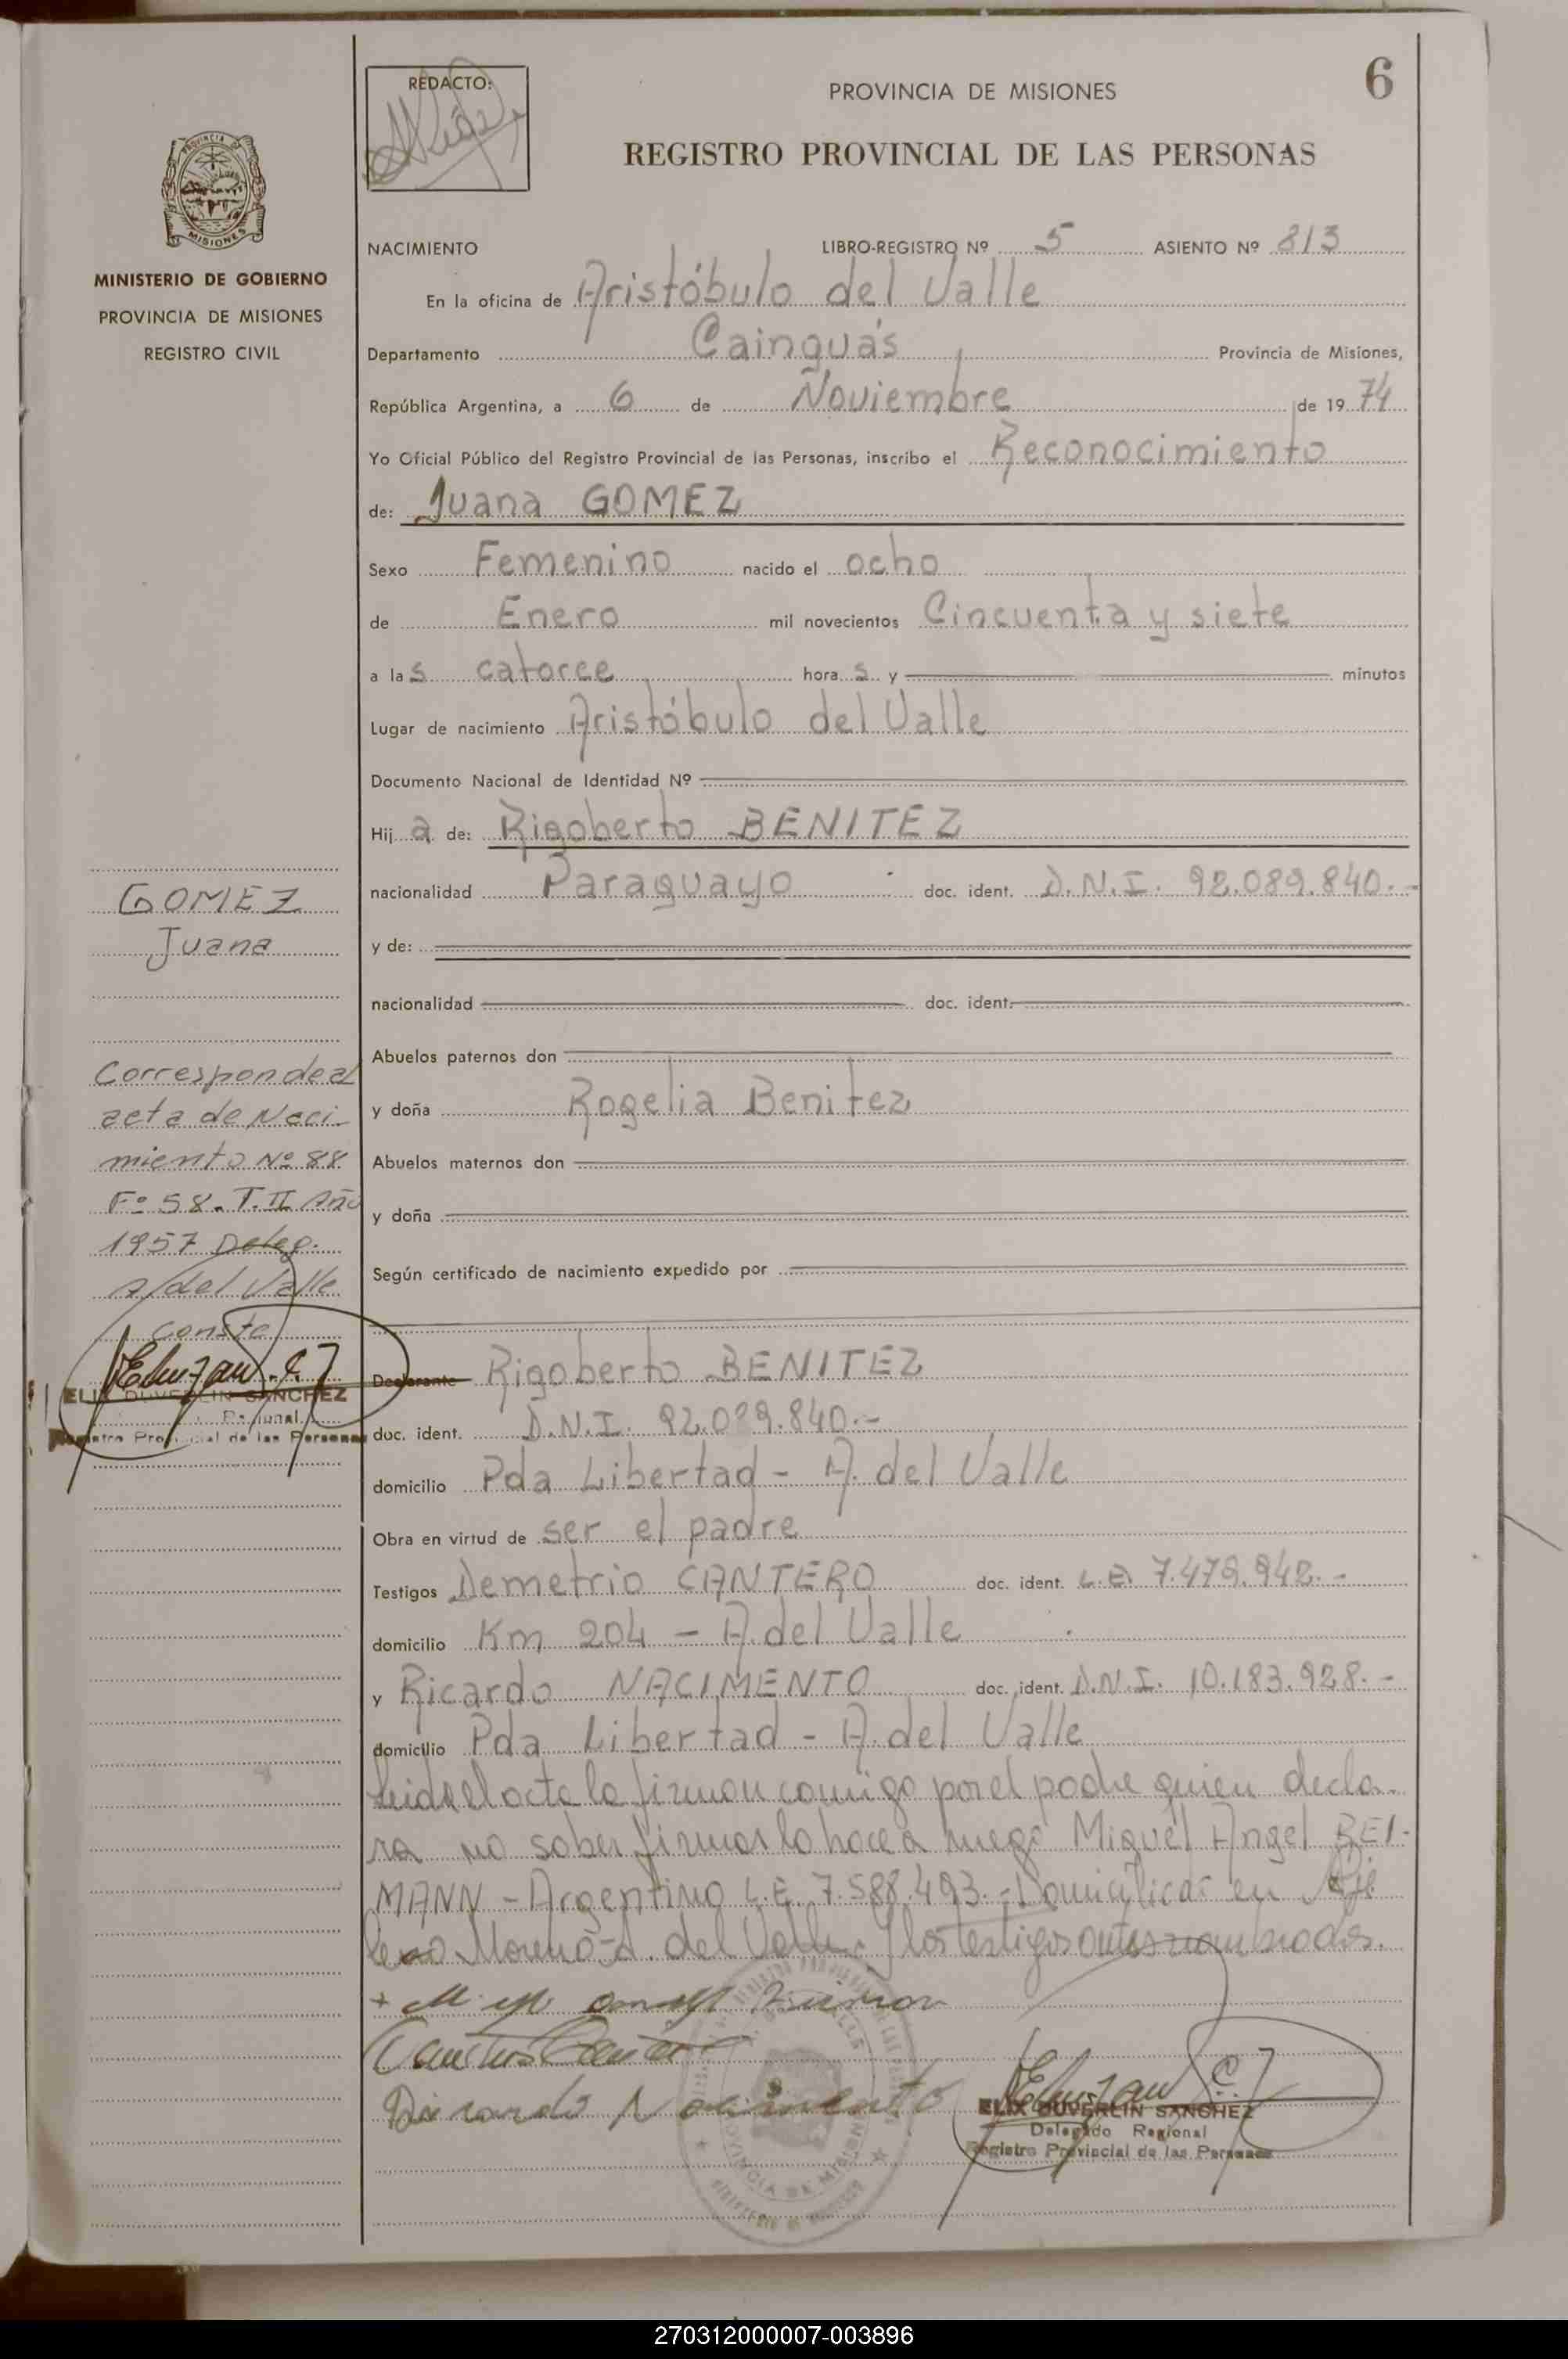 6
REDACTO:
PROVINCIA DE MISIONES
REGISTRO PROVINCIAL DE LAS PERSONAS
MISIONES
MINISTERIO DE GOBIERNO
PROVINCIA DE MISIONES
REGISTRO CIVIL
NACIMIENTO LIBRO-REGISTRO Nº 5 ASIENTO Nº 813
En la oficina de Aristóbulo del Valle
Departamento Cainguás Provincia de Misiones,
República Argentina, a 6 de Noviembre de 1974
Yo Oficial Público del Registro Provincial de las Personas, inscribo el Reconocimiento
de: Juana GOMEZ
Sexo Femenino nacido el ocho
de Enero mil novecientos Cincuenta y siete
a las catorce horas y minutos
Lugar de nacimiento Aristóbulo del Valle
Documento Nacional de Identidad Nº
Hija de: Rigoberto BENITEZ
nacionalidad Paraguayo doc. ident. D.N.I. 92.089.840.-
y de:
nacionalidad doc. ident.
Abuelos paternos don
y doña Rogelia Benitez
Abuelos maternos don
y doña
Según certificado de nacimiento expedido por
GOMEZ
Juana
Corresponde al
acta de Naci-
miento Nº 88
Fº 58. T. II Año
1957 Deleg.
A/del Valle
Conste
ELIX DUVERLIN SANCHEZ
Regional
Registro Provincial de las Personas
Declarante Rigoberto BENITEZ
doc. ident. D.N.I. 92.089.840.-
domicilio Pda Libertad - A. del Valle
Obra en virtud de ser el padre
Testigos Demetrio CANTERO doc. ident. L.E. 7.479.942.-
domicilio Km 204 - A. del Valle
y Ricardo NACIMENTO doc. ident. D.N.I. 10.183.928.-
domicilio Pda Libertad - A. del Valle
Leida el acta la firman comigo por el padre quien decla-
ra no saber firmar lo hace a ruego Miguel Angel REI-
MANN - Argentino L.E. 7.588.493.- Domicilicdo en
Moreno - A. del Valle. Y los testigos antes nombrados.
Ricardo Nacimento
ELIX DUVERLIN SANCHEZ
Delegado Regional
Registro Provincial de las Personas
270312000007-003896